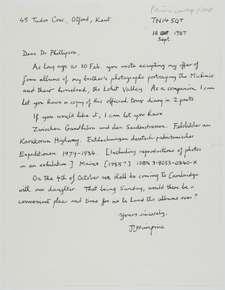 45 Tudor Cres., Otford, Kent
TN14 5QT
18 Sept 1987
Sept
Dear Dr Phillipson,
As long ago as 10 Feb. you wrote accepting my offer of
some albums of my brother's photographs portraying the Mishmis
and their homeland, the Lohit Valley. As a companion I can
let you have a copy of his official tour diary in 2 parts.
If you would like it, I can let you have
Zwischen Gandhāra und den Seidenstrassen. Felsbilder am
Karakorum Highway. Entdeckungen deutsch-pakistanischer
Expeditionen 1979-1984. [Including reproductions of photos
in an exhibition] Mainz [1985?] ISBN 3-8053-0840-X
On the 4th of October we shall be coming to Cambridge
with our daughter. That being Sunday, would there be a
convenient place and time for us to hand the albums over?
Yours sincerely,